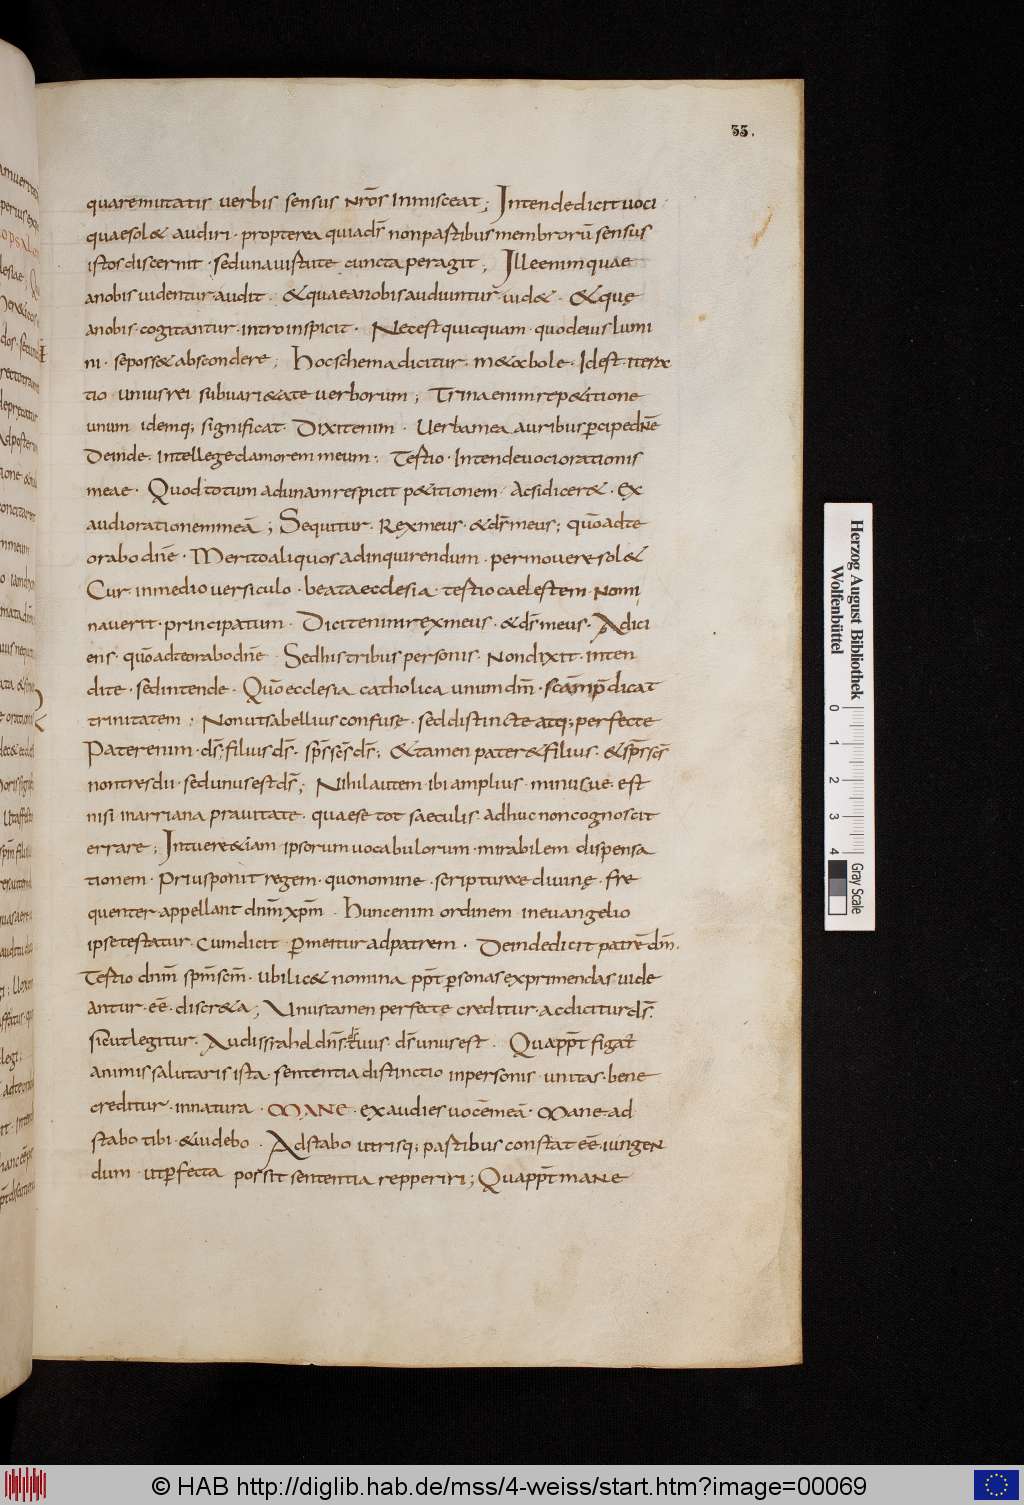 35.
quaremutatis uerbis sensus nr̄os inmisceat; Intendedicit uoci
quaesol& audiri · propterea quiads̄ nonpartibusmembrorū sensus
istos discernit · sedunauirtute cuncta peragit; Ille enim quae
anobis uidentur · audit · &quaeanobisaudiuntur · uid& · &quę
anobis · cogitantur · intro inspicit · Necest quicquam · quodeius lumi
ni · seposs& abscondere; hocschema dicitur · m&abole · Idest · itera
tio · unius rei subuari&ate uerborum; Trina enim rep&itione
unum idemq; significat · Dixitenim · Uerbamea auribus p̄cipe dn̄e
Deinde · intellege clamorem meum: Tertio · Intendeuoci orationis
meae · Quod totum adunam respicit p&itionem · Acsidicer& · Ex
audi orationem meā; Sequitur · Rex meus · &ds̄ meus; quō adte
orabo dn̄e · Merito aliquos adinquirendum · permouere sol&
Cur inmedio uersiculo · beata ecclesia · tertio caelestem · nomi
nauerit · principatum · Dicit enim rex meus · &ds̄ meus · Adici
ens · quō adte orabo dn̄e · Sed his tribus personis · Non dixit · inten
dite · sed intende · Quō ecclesia catholica unum dm̄ · scām p̄dicat
trinitatem; Non ut sabellius confuse · sed distincte atq; perfecte
Pater enim · ds̄; filius ds̄ · sp̄s sc̄s ds̄; &tamen pater &filius · &sp̄s sc̄s
non tres dii · sed unus est ds̄; Nihil autem · ibi amplius · minusue · est
nisi inarriana prauitate · quae se tot saeculis · adhuc non cognoscit
errare; Intuere &iam · ipsorum uocabulorum · mirabilem dispensa
tionem · Prius ponit regem · quo nomine · scripturae diuinę · fre
quenter appellant dnm̄ xpm̄ · hunc enim ordinem in euangelio
ipse testatur · Cum dicit · p̄ me itur ad patrem · Dein de dicit patrē dm̄ ·
Tertio dnm̄ spm̄ scm̄ · Ubi lic& nomina pp̄t p̄sonas exprimendas uide
antur · eē · discr&a; Unus tamen perfecte creditur · ac dicitur ds̄ ·
sicut legitur · Audi israhel dn̄s ds̄ tuus · ds̄ unus est · Quapp̄t figat̄
animis salutaris ista · sententia distinctio inpersonis · unitas · bene
creditur · innatura · MANE · exaudies uocē meā · Mane · ad
stabo tibi · &uidebo · Adstabo utrisq; partibus constat eē · iungen
dum · ut p̄fecta possit sententia repperiri; Quapp̄t mane
Herzog August Bibliothek
Wolfenbüttel
0 1 2 3 4
Gray Scale
© HAB http://diglib.hab.de/mss/4-weiss/start.htm?image=00069